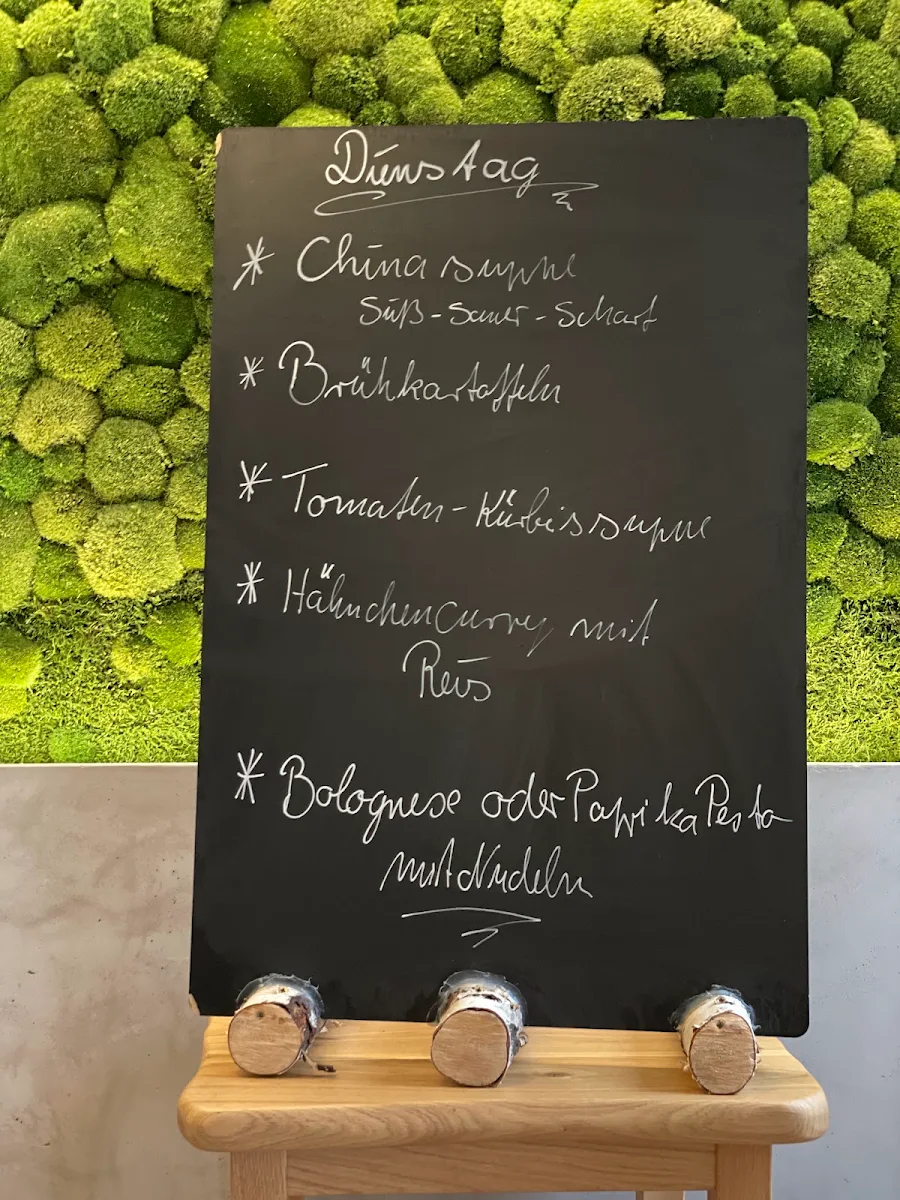 Dienstag
* Chinasuppe
Süß-Sauer-Scharf
* Brühkartoffeln
* Tomaten-Kürbissuppe
* Hähnchencurry mit
Reis
* Bolognese oder Paprika Pesto
mit Nudeln